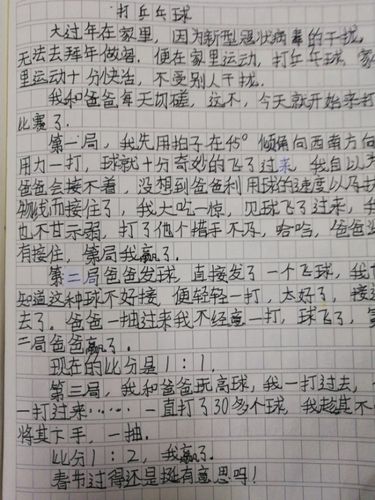 打乒乓球
大过年在家里，因为新型冠状病毒的干扰，
无法去拜年做客，便在家里运动，打乒乓球，家
里运动十分快活，不受别人干扰。
我和爸爸每天切磋，这不，今天就开始来打
比赛了。
第一局，我先用拍子在45°倾角向西南方向
用力一打，球就十分奇妙的飞了过来，我自以为
爸爸会接不着，没想到爸爸利用球的速度以及
物线而接住了，我大吃一惊，见球飞了过来，我
也不甘示弱，打了他个措手不及，哈哈，爸爸没
有接住，第局我赢了。
第二局爸爸发球，直接发了一个飞球，我
知道这种球不好接，便轻轻一打，太好了，接
去了。爸爸一抽过来我不经意一打，球飞了，第
二局爸爸赢了。
现在的比分是1：1。
第三局，我和爸爸玩高球，我一打过去，
一打过来……一直打了30多个球，我趁其不
将其下手，一抽。
比分1：2，我赢了。
春节过得还是挺有意思吗！